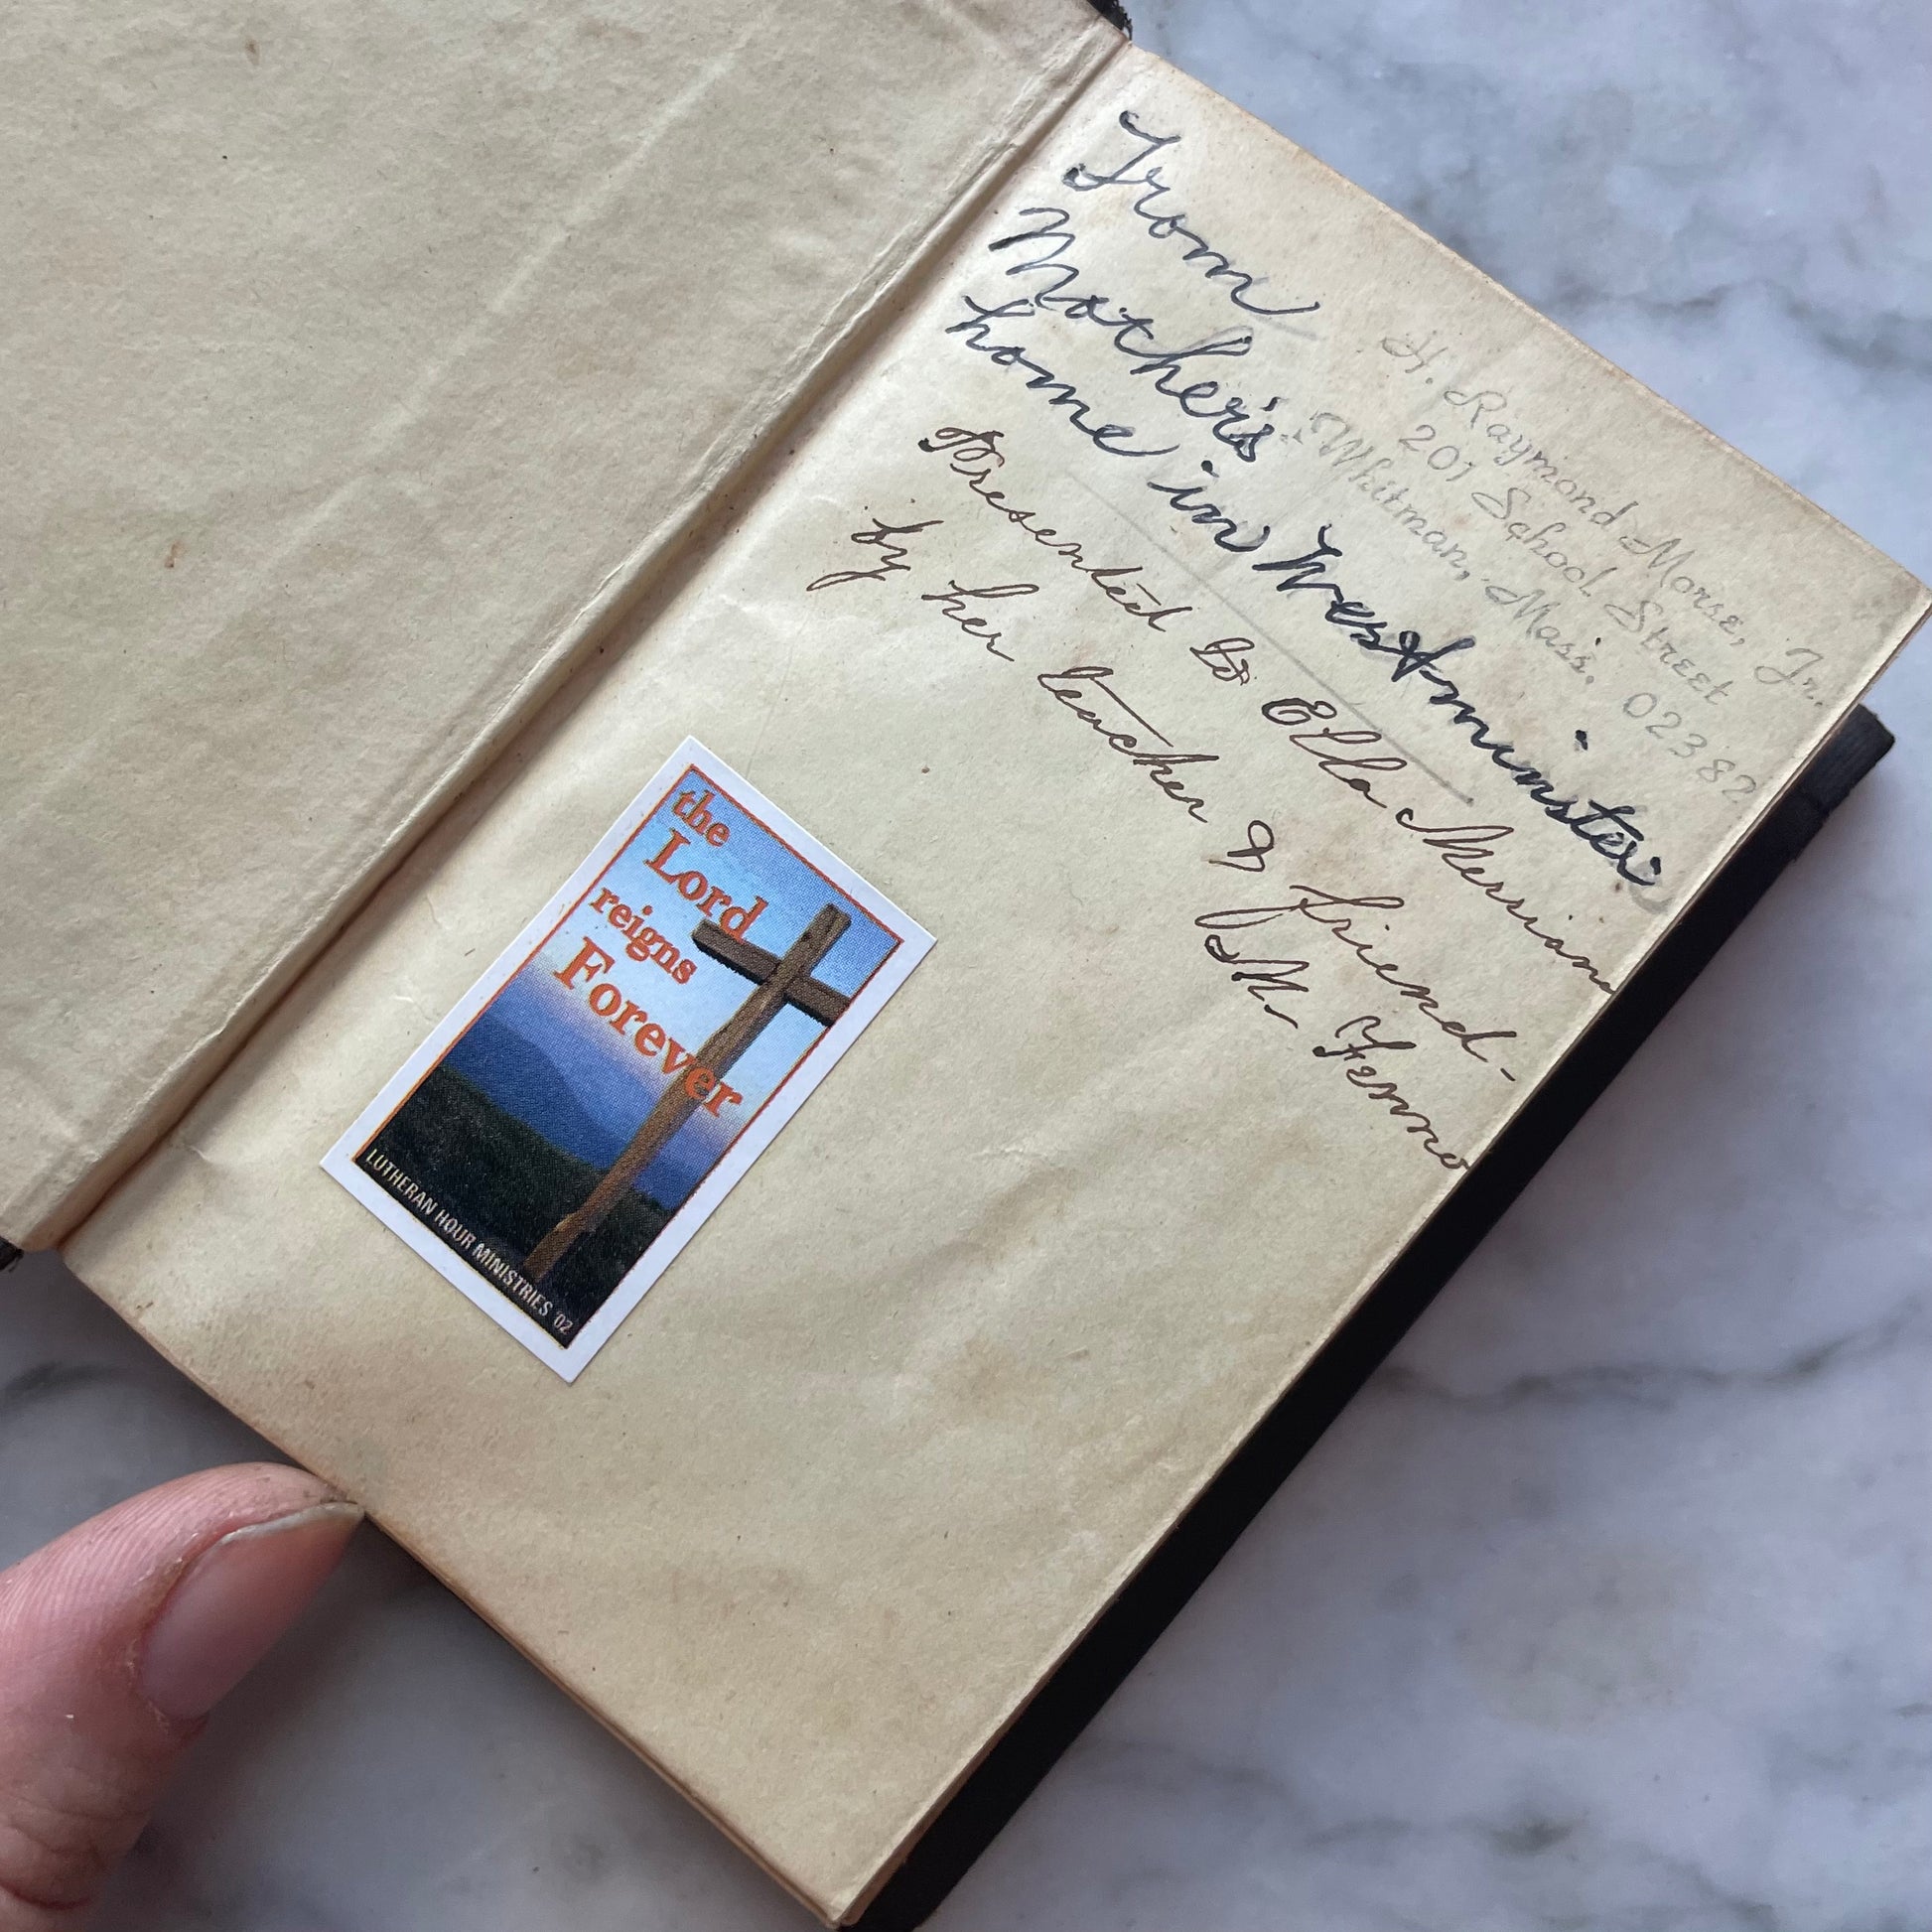 From
Mother's
home in Westminster
H. Raymond Morse, Jr.
201 School Street
Whitman, Mass. 02382
Presented to Ella Merriam
by her teacher & friend -
M. Fenno
the
Lord
reigns
Forever
LUTHERAN HOUR MINISTRIES '02